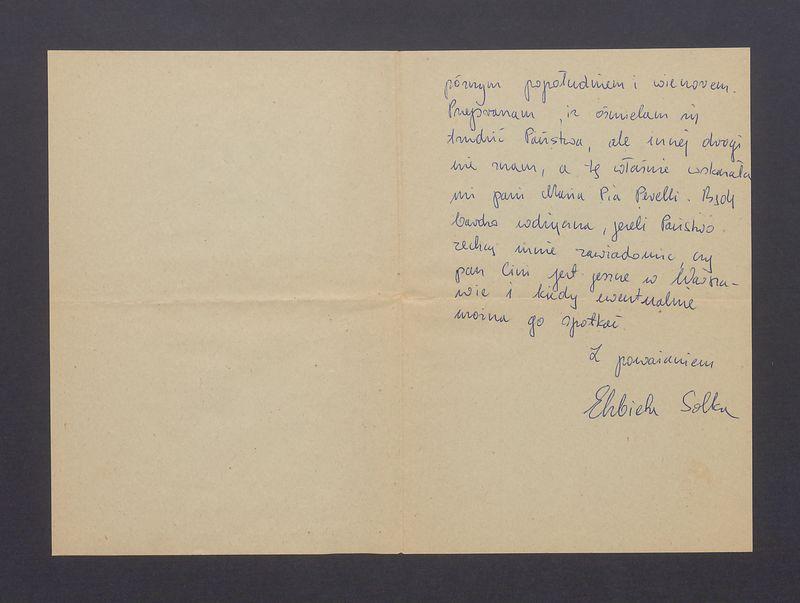 późnym popołudniem i wieczorem.
Przepraszam, iż ośmielam się
trudzić Państwa, ale innej drogi
nie znam, a tę właśnie wskazała
mi pani Maria Pia Pevelli. Będę
bardzo wdzięczna, jeżeli Państwo
zechcą mnie zawiadomić, czy
pan Cini jest jeszcze w Warsza-
wie i kiedy ewentualnie
można go spotkać.
Z poważaniem
Elżbieta Solka